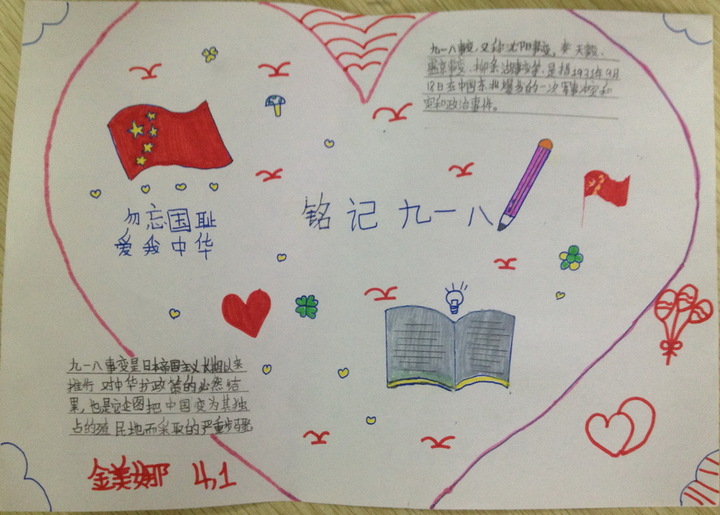 九一八事变,又称沈阳事变、奉天事变、
盛京事变、柳条湖事变等,是指1931年9月
18日在中国东北爆发的一次军事冲突和
突和政治事件。
铭记九一八
勿忘国耻
爱我中华
九一八事变是日本帝国主义长期以来
推行对华扩政策的必然结
果,也是企图把中国变为其独
占的殖民地而采取的严重步骤
金美娜 41